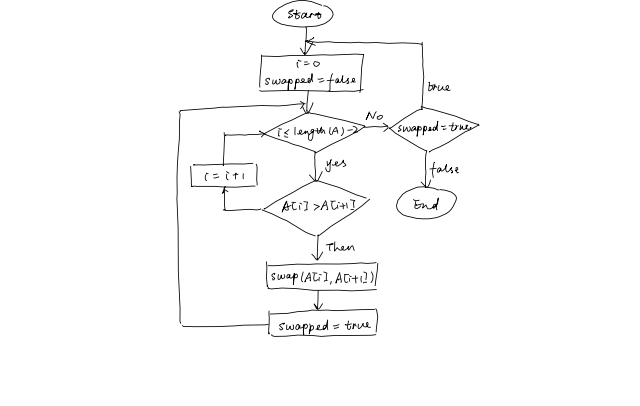 Start
i=0
swapped=false
i≤length(A)-2
No
swapped=true
true
false
End
yes
i=i+1
A[i]>A[i+1]
Then
swap(A[i],A[i+1])
swapped=true